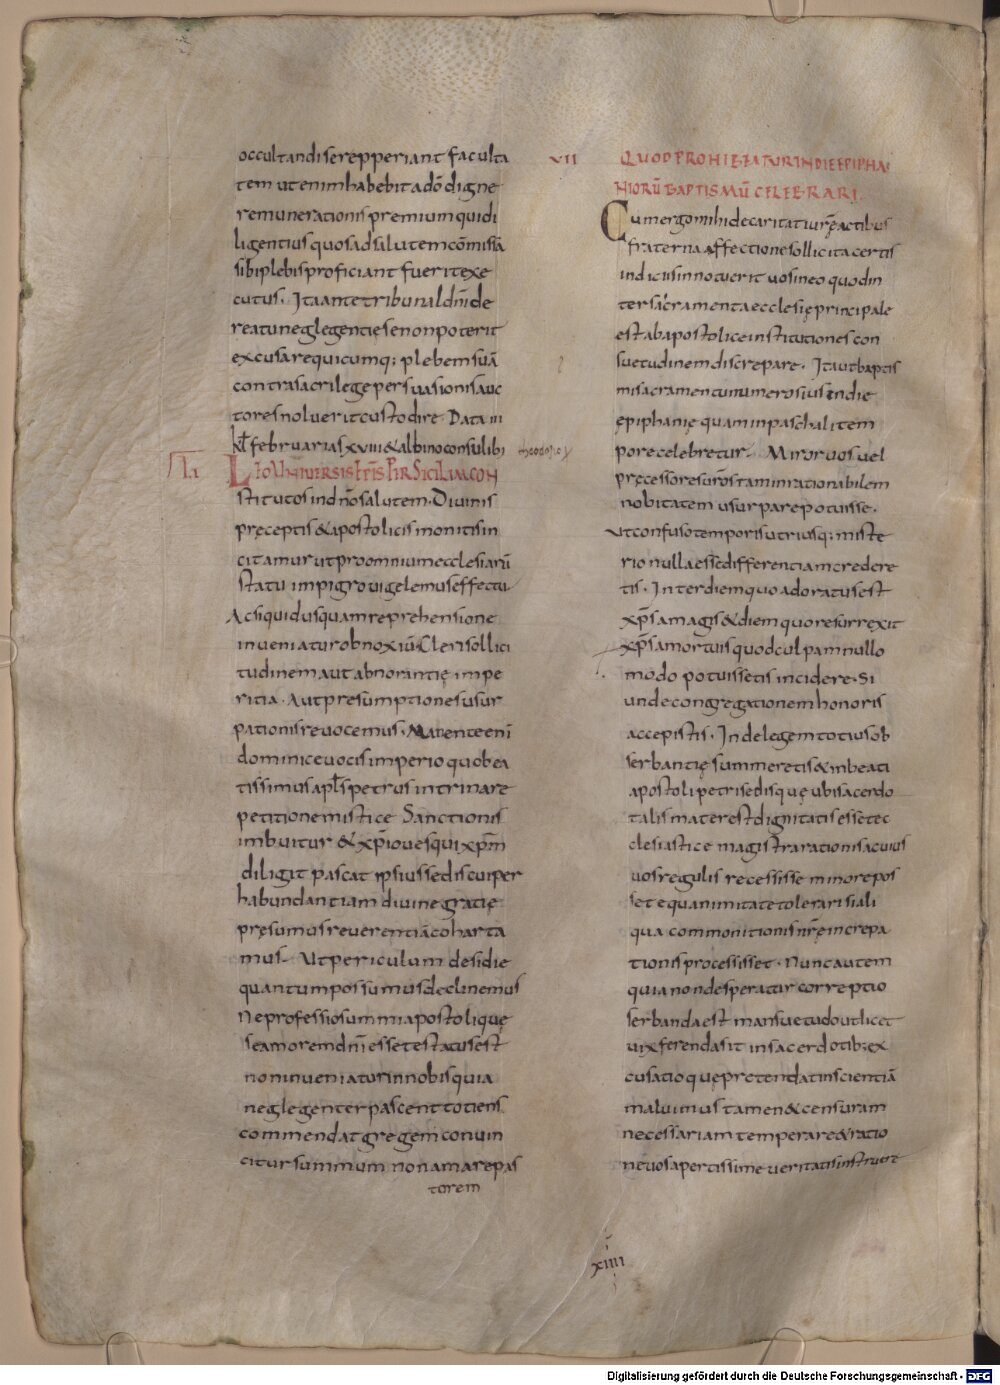 occultandi se repperiant faculta
tem ut enim habebit a dō digne
remunerationis premium qui di
ligentius quos ad salutem cōmissā
sibi plebis proficiant fuerit exe
cutus. Ita ante tribunal dn̄i de
reatu neglegentię se non poterit
excusare quicumq; plebem suā
contra sacrilege persuasionis auc
tores noluerit custodire. Data iii
kl̄ februarias xviii & albino consulib;
theodosio
LI
LEO UNIVERSIS FR̄IS PER SICILIAM CON
stitutos in dn̄o salutem. Divinis
pręceptis & apostolicis monitis in
citamur ut pro omnium ecclesiarū
statu impigro vigelemus effectu
Ac si quid usquam reprehensione
inveniatur obnoxiū Cleri sollici
tudinem aut abnorantię impe
ritia. Aut presumptiones usur
pationis revocemus. Manente enī
dominice vocis imperio quo bea
tissimus apl̄s petrus in trinare
petitione mistice Sanctionis
imbuitur & xp̄i oves qui xp̄m
diligit pascat ipsius sedis cui per
habundantiam divine gratię
pręsumus reverentiā coharta
mur. Ut periculum desidie
quantum possumus declinemus
Ne professio summi apostolique
se amorem dn̄i esse testatus est
non inveniatur in nobis quia
neglegenter pascent totiens
commendat gregem convin
citur summum non amare pas
torem
VII
QUOD PROHIBEATUR IN DIE EPIPHA
NIORŪ BAPTISMŪ CELEBRARI
Cum ergo mihi de caritati vr̄ę actibus
fraterna affectione sollicita certis
indiciis innotuerit vos in eo quod in
ter sacramenta ecclesię principale
est ab apostolice institutiones con
suetudinem discrepare. Ita ut baptis
mi sacramentu numerosius in die
epiphanię quam in paschali tem
pore celebretur. Miror vos vel
pręcessores vr̄os tam inrationabilem
nobitatem usurpare potuisse.
Ut confuso temporis utriusq; miste
rio nulla esse differenciam credere
tis. Inter diem quo adoratus est
xp̄s a magis & diem quo resurrexit
xp̄s a mortuis quod culpam nullo
modo potuissetis incidere. Si
unde congregationem honoris
accepistis. Inde legem totius ob
serbantię summeretis & in beati
apostoli petri sedis quę ubi sacerdo
talis mater est dignitatis esset ec
clesiastice magistra rationis acuius
vos regulis recessisse minore pos
set equanimitate tolerari si ali
qua commonitionis nr̄ę increpa
tionis processisset. Nunc autem
quia non desperatur correptio
serbanda est mansuetudo ut licet
vix ferenda sit in sacerdotib; ex
cusatio quę pretendat inscientiā
maluimus tamen & censuram
necessariam temperare & ratio
nt vos apertissime veritatis instruere
xiiii
Digitalisierung gefördert durch die Deutsche Forschungsgemeinschaft - DFG